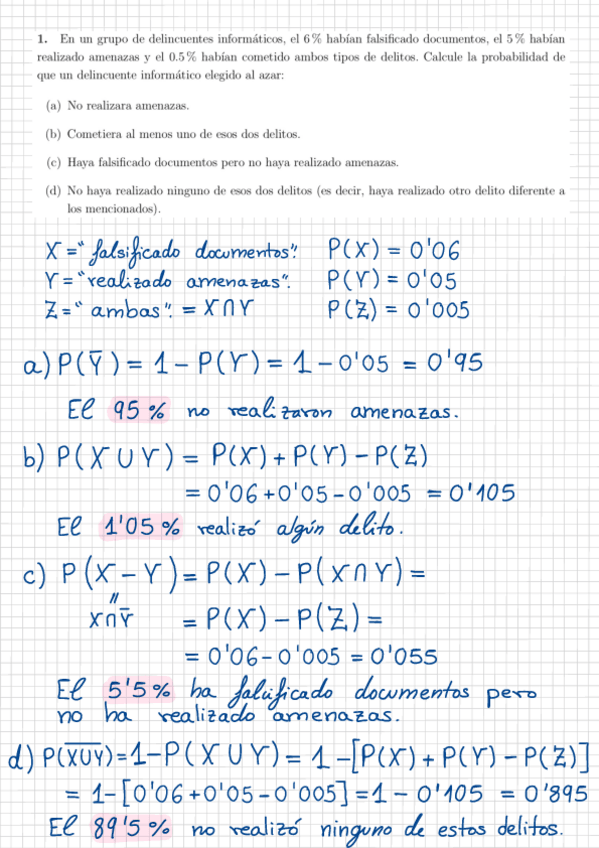 1. En un grupo de delincuentes informáticos, el 6 % habían falsificado documentos, el 5 % habían
realizado amenazas y el 0.5 % habían cometido ambos tipos de delitos. Calcule la probabilidad de
que un delincuente informático elegido al azar:
(a) No realizara amenazas.
(b) Cometiera al menos uno de esos dos delitos.
(c) Haya falsificado documentos pero no haya realizado amenazas.
(d) No haya realizado ninguno de esos dos delitos (es decir, haya realizado otro delito diferente a
los mencionados).
X = "falsificado documentos". P(X) = 0'06
Y = "realizado amenazas". P(Y) = 0'05
Z = "ambas". = X∩Y P(Z) = 0'005
a) P(Y̅) = 1 - P(Y) = 1 - 0'05 = 0'95
El 95 % no realizaron amenazas.
b) P(X ∪ Y) = P(X) + P(Y) - P(Z)
= 0'06 + 0'05 - 0'005 = 0'105
El 1'05 % realizó algún delito.
c) P(X - Y) = P(X) - P(X∩Y) =
"
X∩Y̅ = P(X) - P(Z) =
= 0'06 - 0'005 = 0'055
El 5'5 % ha falsificado documentos pero
no ha realizado amenazas.
d) P(X̅∪̅Y̅) = 1 - P(X ∪ Y) = 1 - [P(X) + P(Y) - P(Z)]
= 1 - [0'06 + 0'05 - 0'005] = 1 - 0'105 = 0'895
El 89'5 % no realizó ninguno de estos delitos.